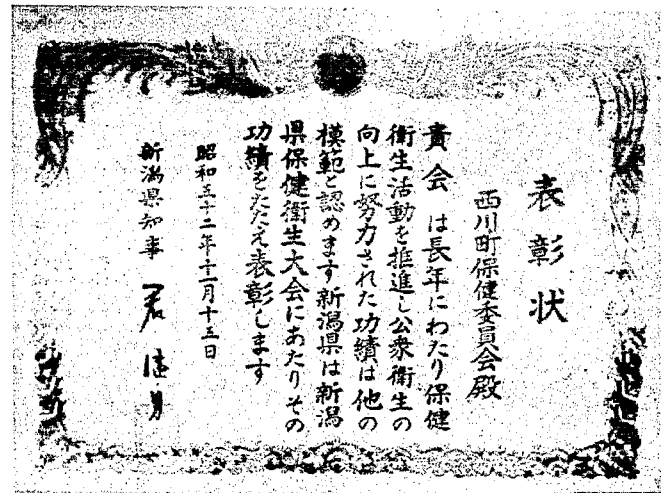 表彰状
西川町保健委員会殿
貴会 は長年にわたり保健
衛生活動を推進し公衆衛生の
向上に努力された功績は他の
模範と認めます新潟県は新潟
県保健衛生大会にあたりその
功績をたたえ表彰します
昭和五十二年十一月十五日
新潟県知事 君健男